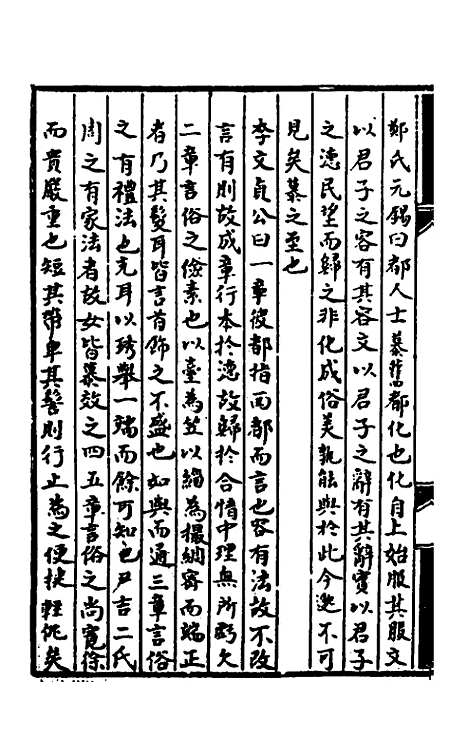 鄭氏元錫曰都人士慕舊都化也化自上始服其服文
以君子之容有其容文以君子之辭有其辭實以君子
之德民望而歸之非化成俗美孰能與於此今邈不可
見矣慕之至也
李文貞公曰一章彼都指西都而言也容有法故不改
言有則故成章行本於德故歸於合情中理無所虧欠
二章言俗之儉素也以臺為笠以緇為撮綢密而端正
者乃其髮耳皆言首飾之不盛也如與而通三章言俗
之有禮法也充耳以琇舉一端而餘可知也尹吉二氏
周之有家法者故女皆慕效之四五章言俗之尚寬徐
而貴嚴重也短其帶卑其髻則行止為之便捷輕佻矣